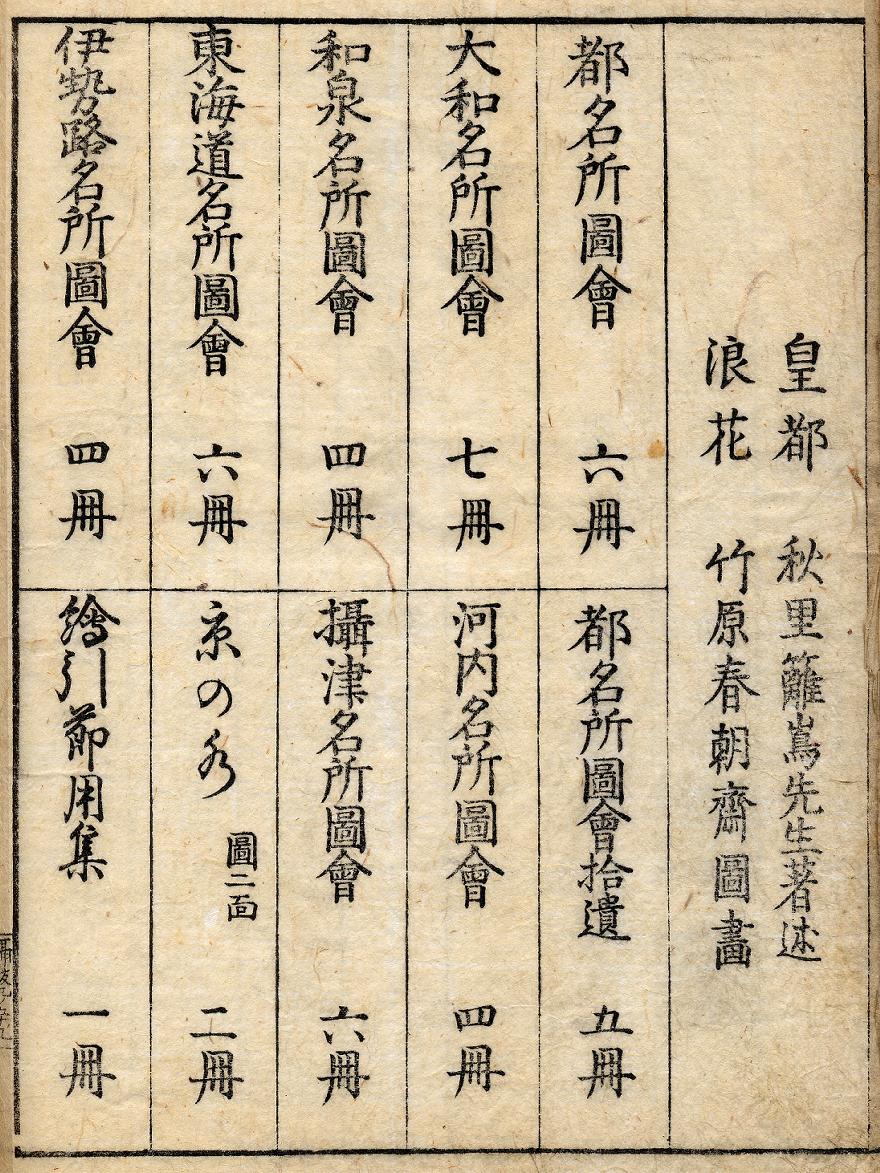 皇都　秋里籬嶌先生著述
浪花　竹原春朝齋圖畫
都名所圖會　六冊
都名所圖會拾遺　五冊
大和名所圖會　七冊
河内名所圖會　四冊
和泉名所圖會　四冊
攝津名所圖會　六冊
東海道名所圖會　六冊
京の水　圖二面　二冊
伊勢路名所圖會　四冊
繪引節用集　一冊